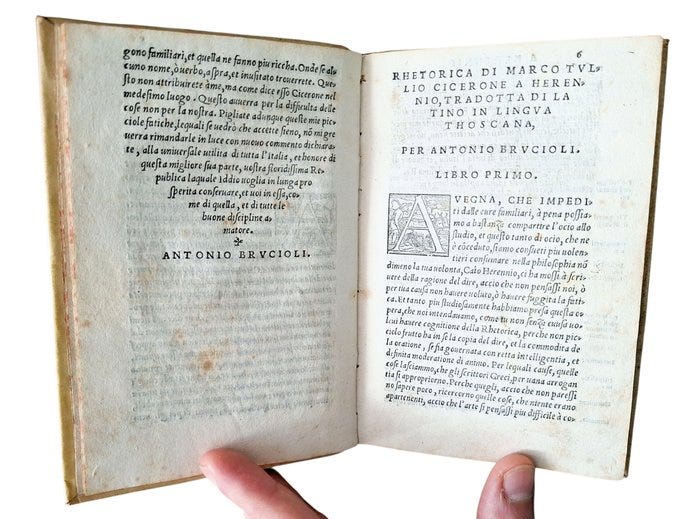 gono familiari, et quella ne fanno piu riccha. Onde se al=
cuno nome, ò verbo, aspra, et inusitato trouerrete. Que=
sto non attribuirete àme, ma come dice esso Cicerone nel
medesimo luogo. Questo auuerra per la difficulta delle
cose non per la nostra. Pigliate adunque queste mie pic=
ciole fatiche, lequali se uedrò che accette sieno, nō mi gre
uerra rimandarle in luce con nuouo commento dichiara=
te, alla uniuersale utilita di tutta l'Italia, et honore di
questa migliore sua parte, uostra floridissima Re
publica laquale Iddio uoglia in lunga pro
sperita conseruare, et uoi in essa, co=
me di quella, et di tutte le
buone discipline a=
matore.
ANTONIO BRVCIOLI.
6
RHETORICA DI MARCO TVL=
LIO CICERONE A HEREN=
NIO, TRADOTTA DI LA
TINO IN LINGVA
THOSCANA,
PER ANTONIO BRVCIOLI.
LIBRO PRIMO.
AVEGNA, CHE IMPEDI
ti dalle cure familiari, à pena possia=
mo a bastanza compartire l'ocio allo
studio, et questo tanto di ocio, che ne
è cōceduto, siamo consueti piu uolen=
tieri consumare nella philosophia nō
dimeno la tua uolonta, Caio Herennio, ci ha mossi à scri=
uere della ragione del dire, accio che non pensassi noi, ò
per tua causa non hauere uoluto, ò hauere fuggita la fati=
ca. Et tanto piu studiosamente habbiamo presa questa co=
pera, che noi intendauamo, come tu non senza causa uo=
lcui hauere cognitione della Rhetorica, perche non pic=
ciolo frutto ha in se la copia del dire, et la commodita de
la oratione, se fia gouernata con retta intelligentia, et
difinita moderatione di animo. Per lequali cause, quelle
cose lasciammo, che gli scrittori Greci, per uana arrogan
tia si appropriorno. Perche quegli, accio che non paressi
no sapere poco, ricercorno quelle cose, che niente erano
apartenenti, accio che l'arte si pensassi piu difficile à co=